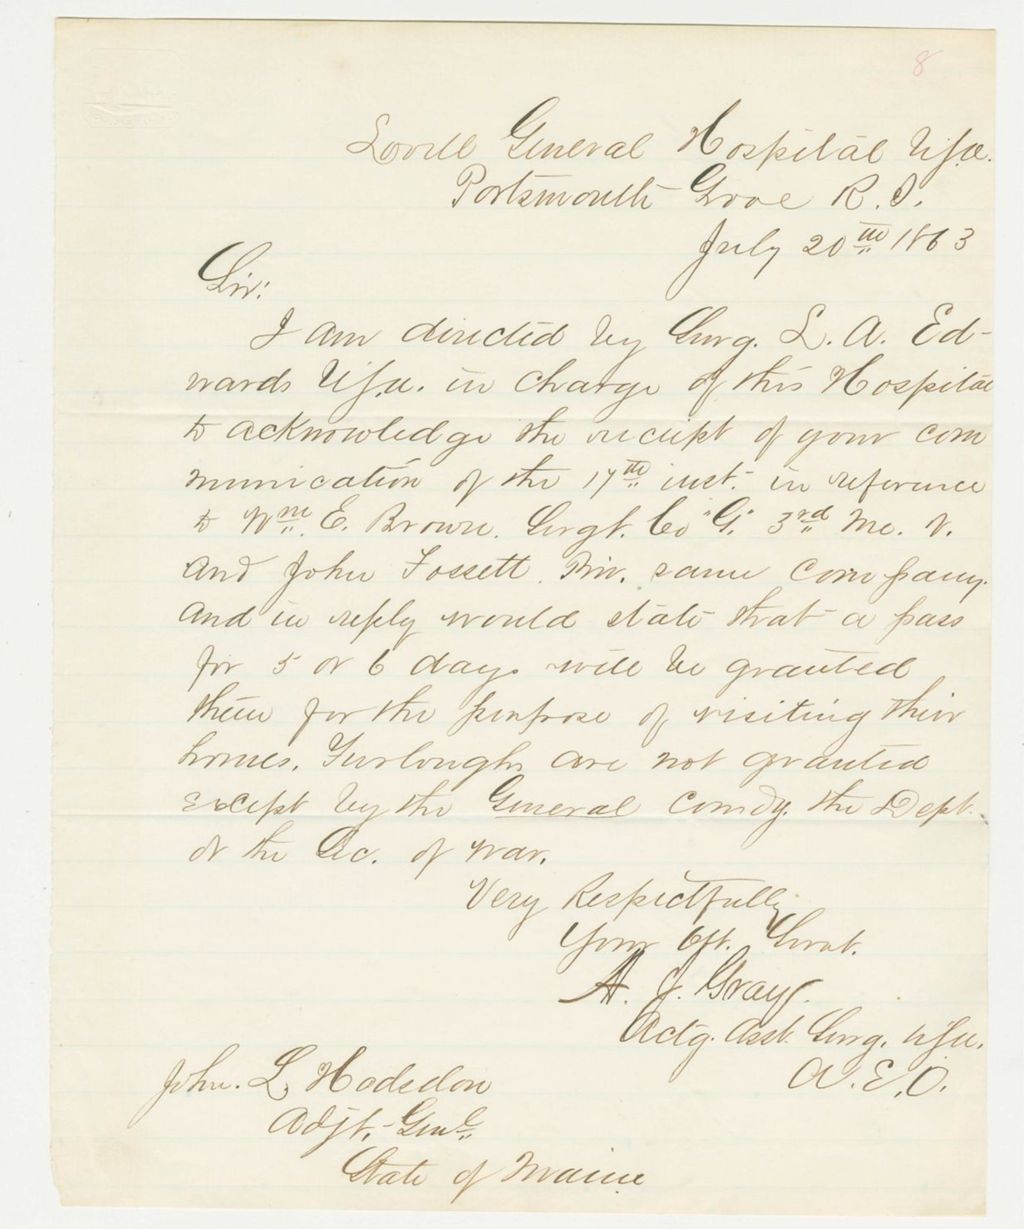 8
Lovell General Hospital U.S.A.
Portsmouth Grove R.I.
July 20th 1863
Sir:
I am directed by Surg. L. A. Ed-
wards U.S.A. in charge of this Hospital
to acknowledge the receipt of your com
munication of the 17th inst. in reference
to Wm. E. Brown. Sergt. Co "G" 3rd Me. V.
and John Fossett. Priv. same company.
and in reply would state that a pass
for 5 or 6 days will be granted
them for the purpose of visiting their
homes. Furloughs are not granted
except by the General comdg. the Dept.
or the Sec. of War.
Very Respectfully
Your Obt. Servt.
A. J. Gray
Actg. Asst. Surg. U.S.A.
A.E.O.
John. L. Hodsdon
Adjt.-Genl.
State of Maine